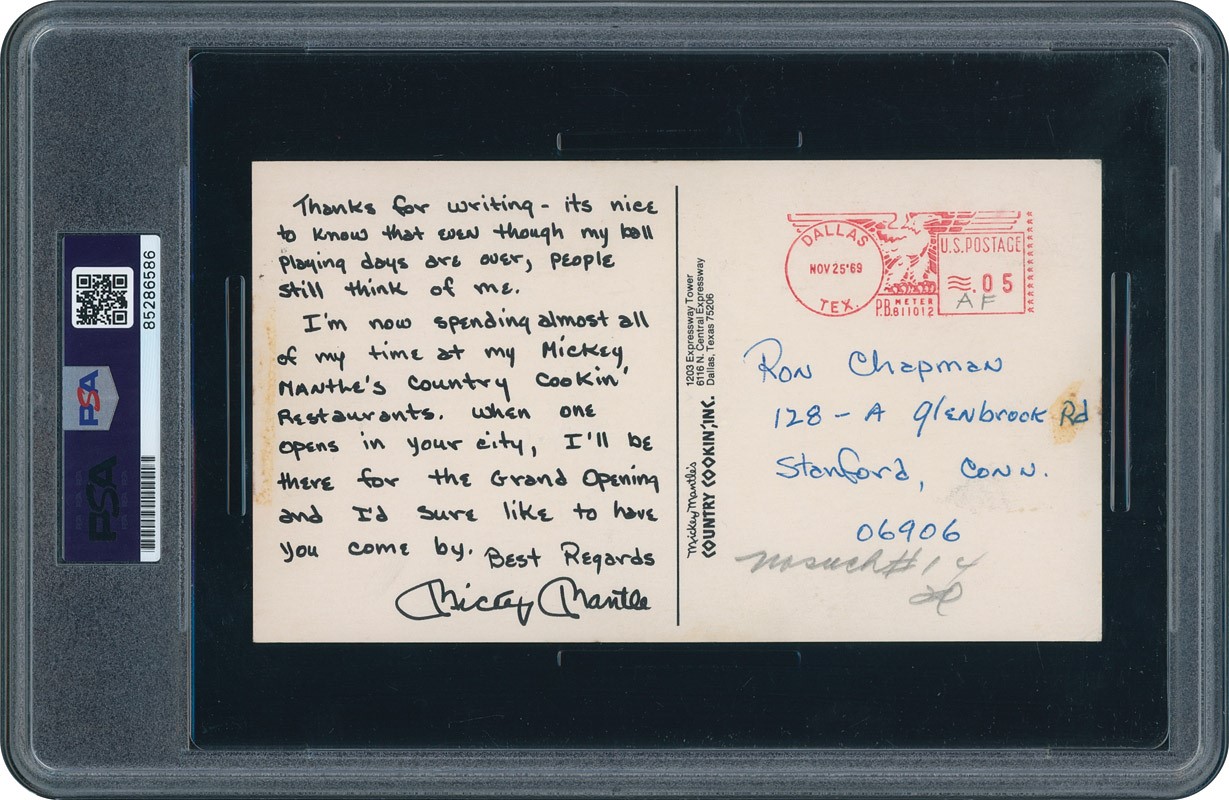 Thanks for writing - its nice
to know that even though my ball
playing days are over, people
still think of me.
I'm now spending almost all
of my time at my Mickey
Mantle's Country Cookin'
Restaurants. When one
opens in your city, I'll be
there for the Grand Opening
and I'd sure like to have
you come by. Best Regards
Mickey Mantle
Mickey Mantle's
COUNTRY COOKIN', INC.
1203 Expressway Tower
6116 N. Central Expressway
Dallas, Texas 75206
DALLAS
NOV 25 '69
TEX.
U.S. POSTAGE
.05
P.B. METER
811012
AF
Ron Chapman
128 - A Glenbrook Rd
Stanford, Conn.
06906
no such # 14
85286586
PSA
PSA